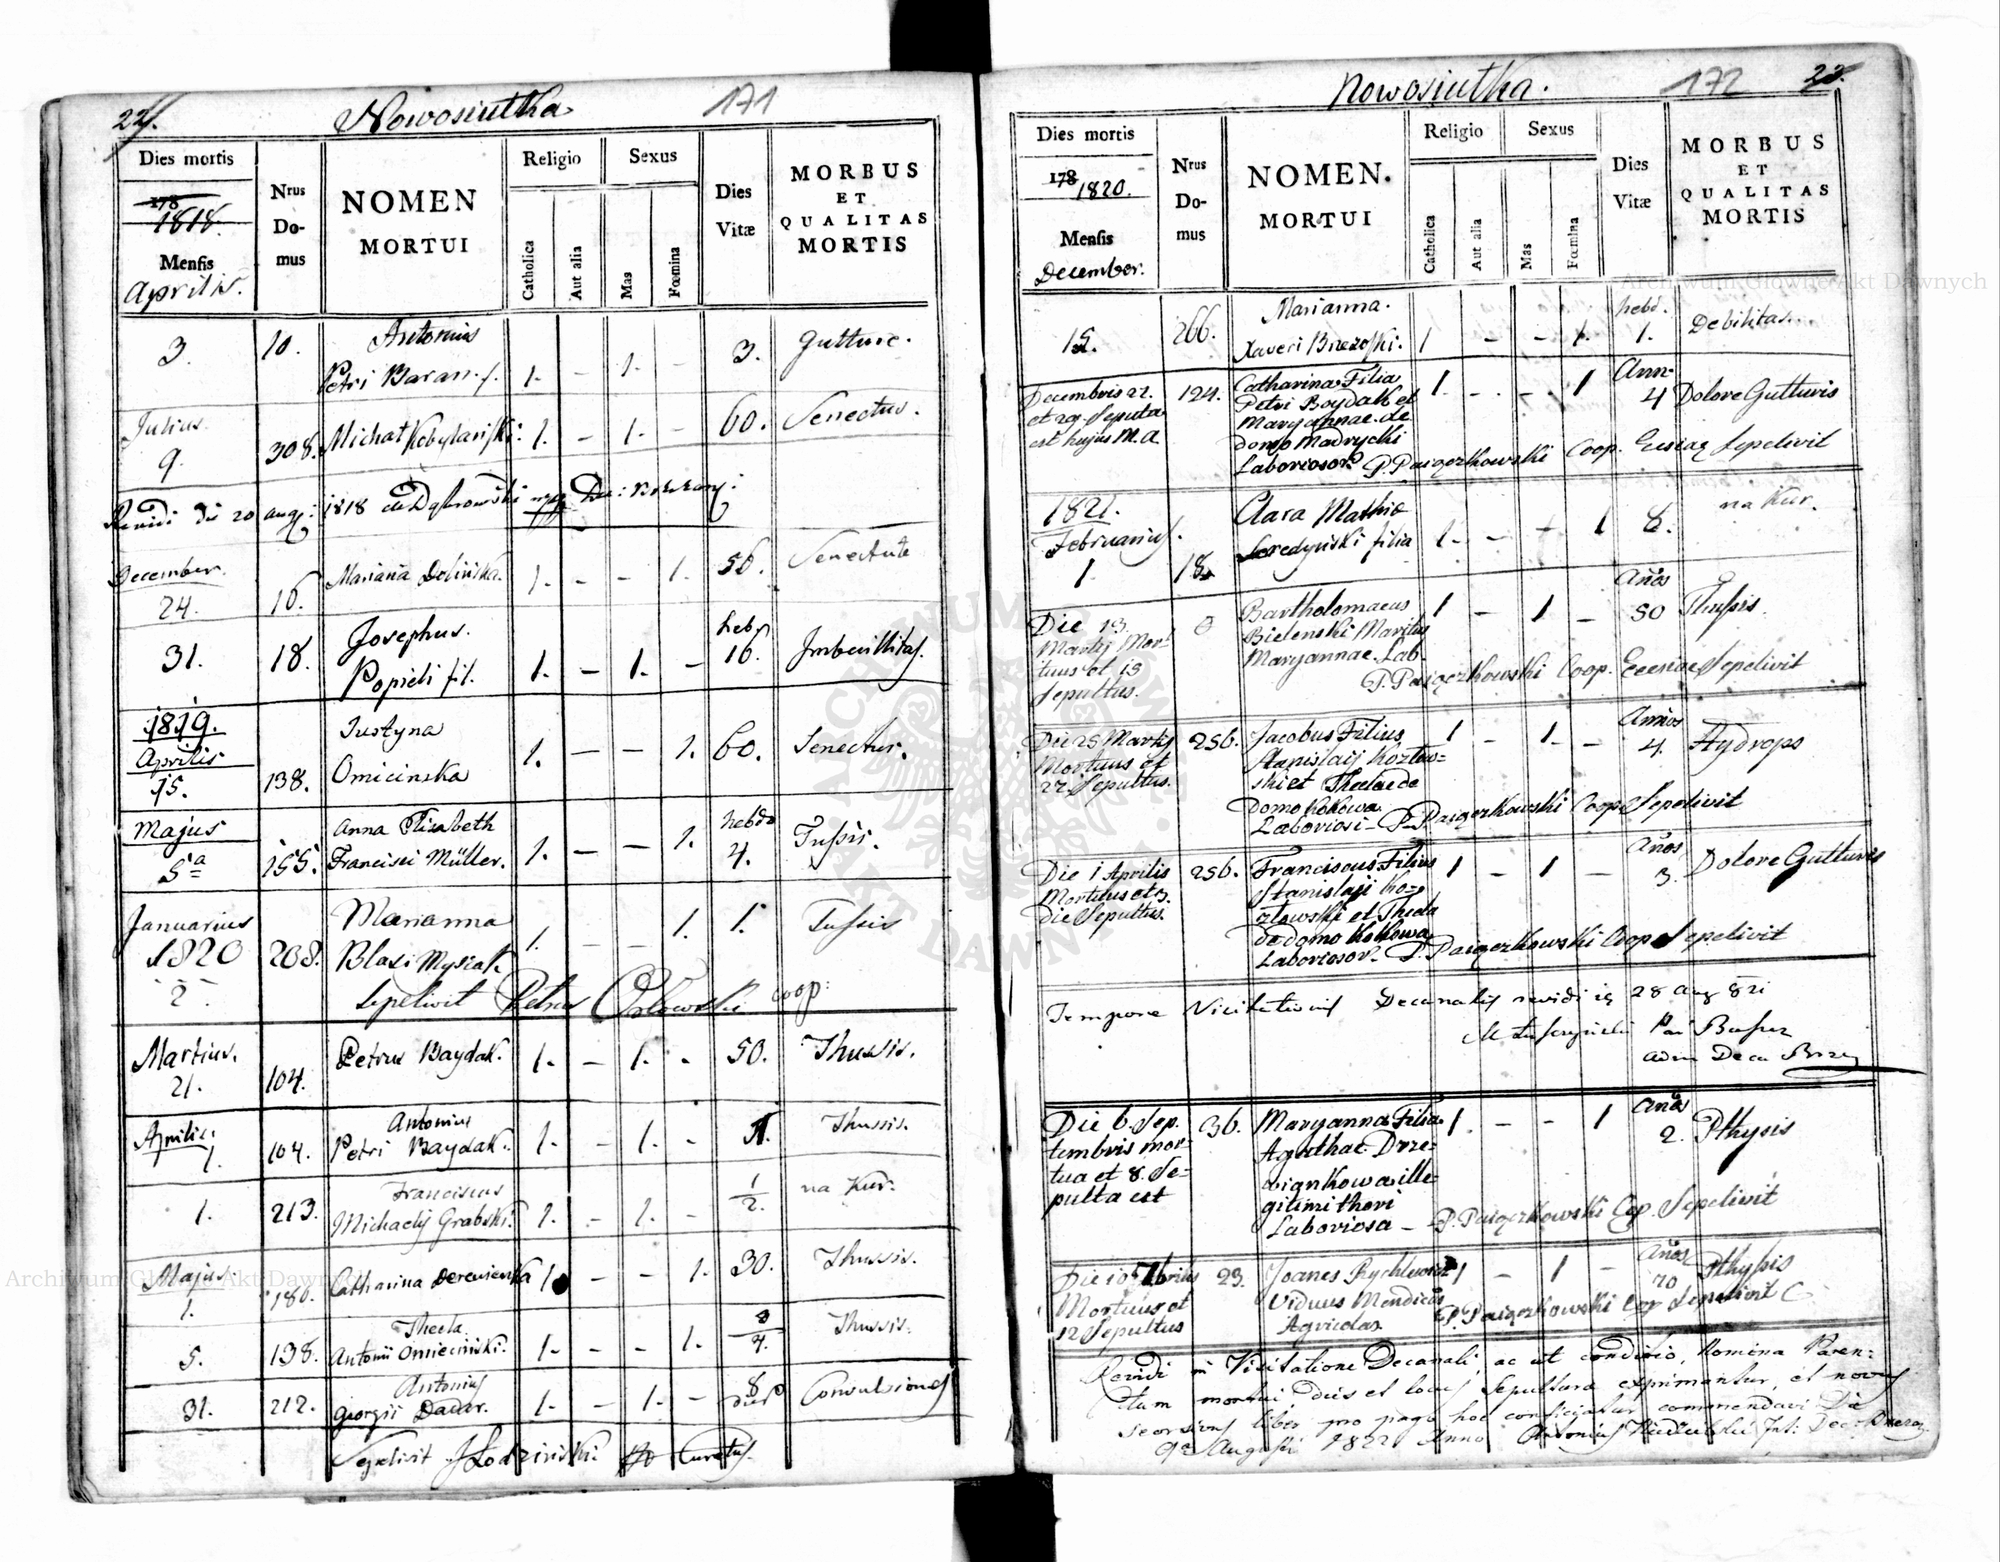 22.
Nowosiutka
171
Dies mortis
178
1818.
Mensis
Aprilis.
Nrus
Do-
mus
NOMEN
MORTUI
Religio
Catholica
Aut alia
Sexus
Mas
Fœmina
Dies
Vitæ
MORBUS
ET
QUALITAS
MORTIS
3.
10.
Antonius
Petri Baran. f.
1. - 1. -
3.
gutture.
Julius.
9.
308.
Michał Kobylański.
1. - 1. -
60.
Senectus.
Revidi die 20 aug: 1818
December.
24.
16.
Marianna Dolińska.
1. - - 1.
56.
Senectute
31.
18.
Josephus.
Popieli fil.
1. - 1. -
heb.
16.
Imbecillitas.
1819.
Aprilis
15.
138.
Justyna
Omiecinska
1. - - 1.
60.
Senectus.
Majus
5a
155.
Anna Elisabeth
Francisci Müller.
1. - - 1.
hebdo
4.
Tussis.
Januarius
1820
2.
208.
Marianna
Blasi Mysiak
1. - - 1.
1.
Tussis
Sepelivit Petrus Orłowski coop:
Martius.
21.
104.
Petrus Baydak.
1. - 1. -
50.
Thussis.
Aprilis
1.
104.
Antonius
Petri Baydak.
1. - 1. -
Thussis.
1.
213.
Franciscus
Michaelis Grabski.
1. - 1. -
1/2.
na Kur.
Majus.
1.
180.
Catharina Derewienka
1. - - 1.
30.
Thussis.
5.
138.
Thecla
Antonii Omieciński.
1. - - 1.
Thussis.
31.
212.
Antonius
Georgii Dadar.
1. - 1. -
8
dies
Convulsiones
Sepelivit
Curatus.
Nowosiutka.
172
23.
Dies mortis
178
1820.
Mensis
December.
Nrus
Do-
mus
NOMEN.
MORTUI
Religio
Catholica
Aut alia
Sexus
Mas
Fœmina
Dies
Vitæ
MORBUS
ET
QUALITAS
MORTIS
15.
266.
Marianna.
Xaveri Brzozski.
1 - - 1.
hebd.
1.
Debilitas.
Decembris 22.
et 29. Sepulta
est hujus M. a.
124.
Catharina Filia
Petri Boydak et
Maryannae de
Domo Madrycki
Laboriosor.
1. - - 1
Ann.
4
Dolore Gutturis
P. Paigerkowski Coop. Eccsiae Sepelivit
1821.
Februarius.
1.
18.
Clara Mathie
Seredyński filia
1. - - 1
8.
na Kur.
Die 13.
Martij Mor-
tuus et 15
Sepultus.
0
Bartholomaeus
Bielenski Maritus
Maryannae. Lab.
1 - 1 -
Años
50
Thussis.
P. Paigerkowski Coop. Eccsiae Sepelivit
Die 25 Martij
Mortuus et
27. Sepultus.
256.
Jacobus Filius
Stanislaij Kozłow-
ski et Theclae de
Domo Kokowa.
Laboriosi -
1 - 1 -
Annos
4.
Hydrops
P. Paigerkowski Coop. Sepelivit
Die 1 Aprilis
Mortuus et 3.
die Sepultus.
256.
Franciscus Filius
Stanislaji Ko-
złowski et Thecla
de Domo Kokowa
Laboriosor.
1 - 1 -
Años
3.
Dolore Gutturis
P. Paigerkowski Coop Sepelivit
Tempore Visitationis Decanalis revidi 28 Aug 821
Die 6. Sep.
tembris mor-
tua et 8. Se-
pulta est
36.
Maryanna Filia
Agathae Drze-
wiankowa ille-
gitimi thori
Laboriosa -
1. - - 1
Años
2.
Pthysis
P. Paigerkowski Cop. Sepelivit
Die 10 7bris
Mortuus et
12 Sepultus
23.
Joanes Rychlewicz
Viduus Mendicus
Agricolas.
1 - 1 -
Años
70
Pthysis
P. Paigerkowski Cop Sepelivit
Revidi in Visitatione Decanali, ac ut conditio, Nomina Paren-
tum mortui, dies et locus Sepulturae exprimantur, et novus
seorsivus liber pro pago hoc conficiatur commendavi Die
9a Augusti 1822 Anno Antonius
Archiwum Główne Akt Dawnych
Archiwum Główne Akt Dawnych
ARCHIWUM GŁÓWNE AKT DAWNYCH